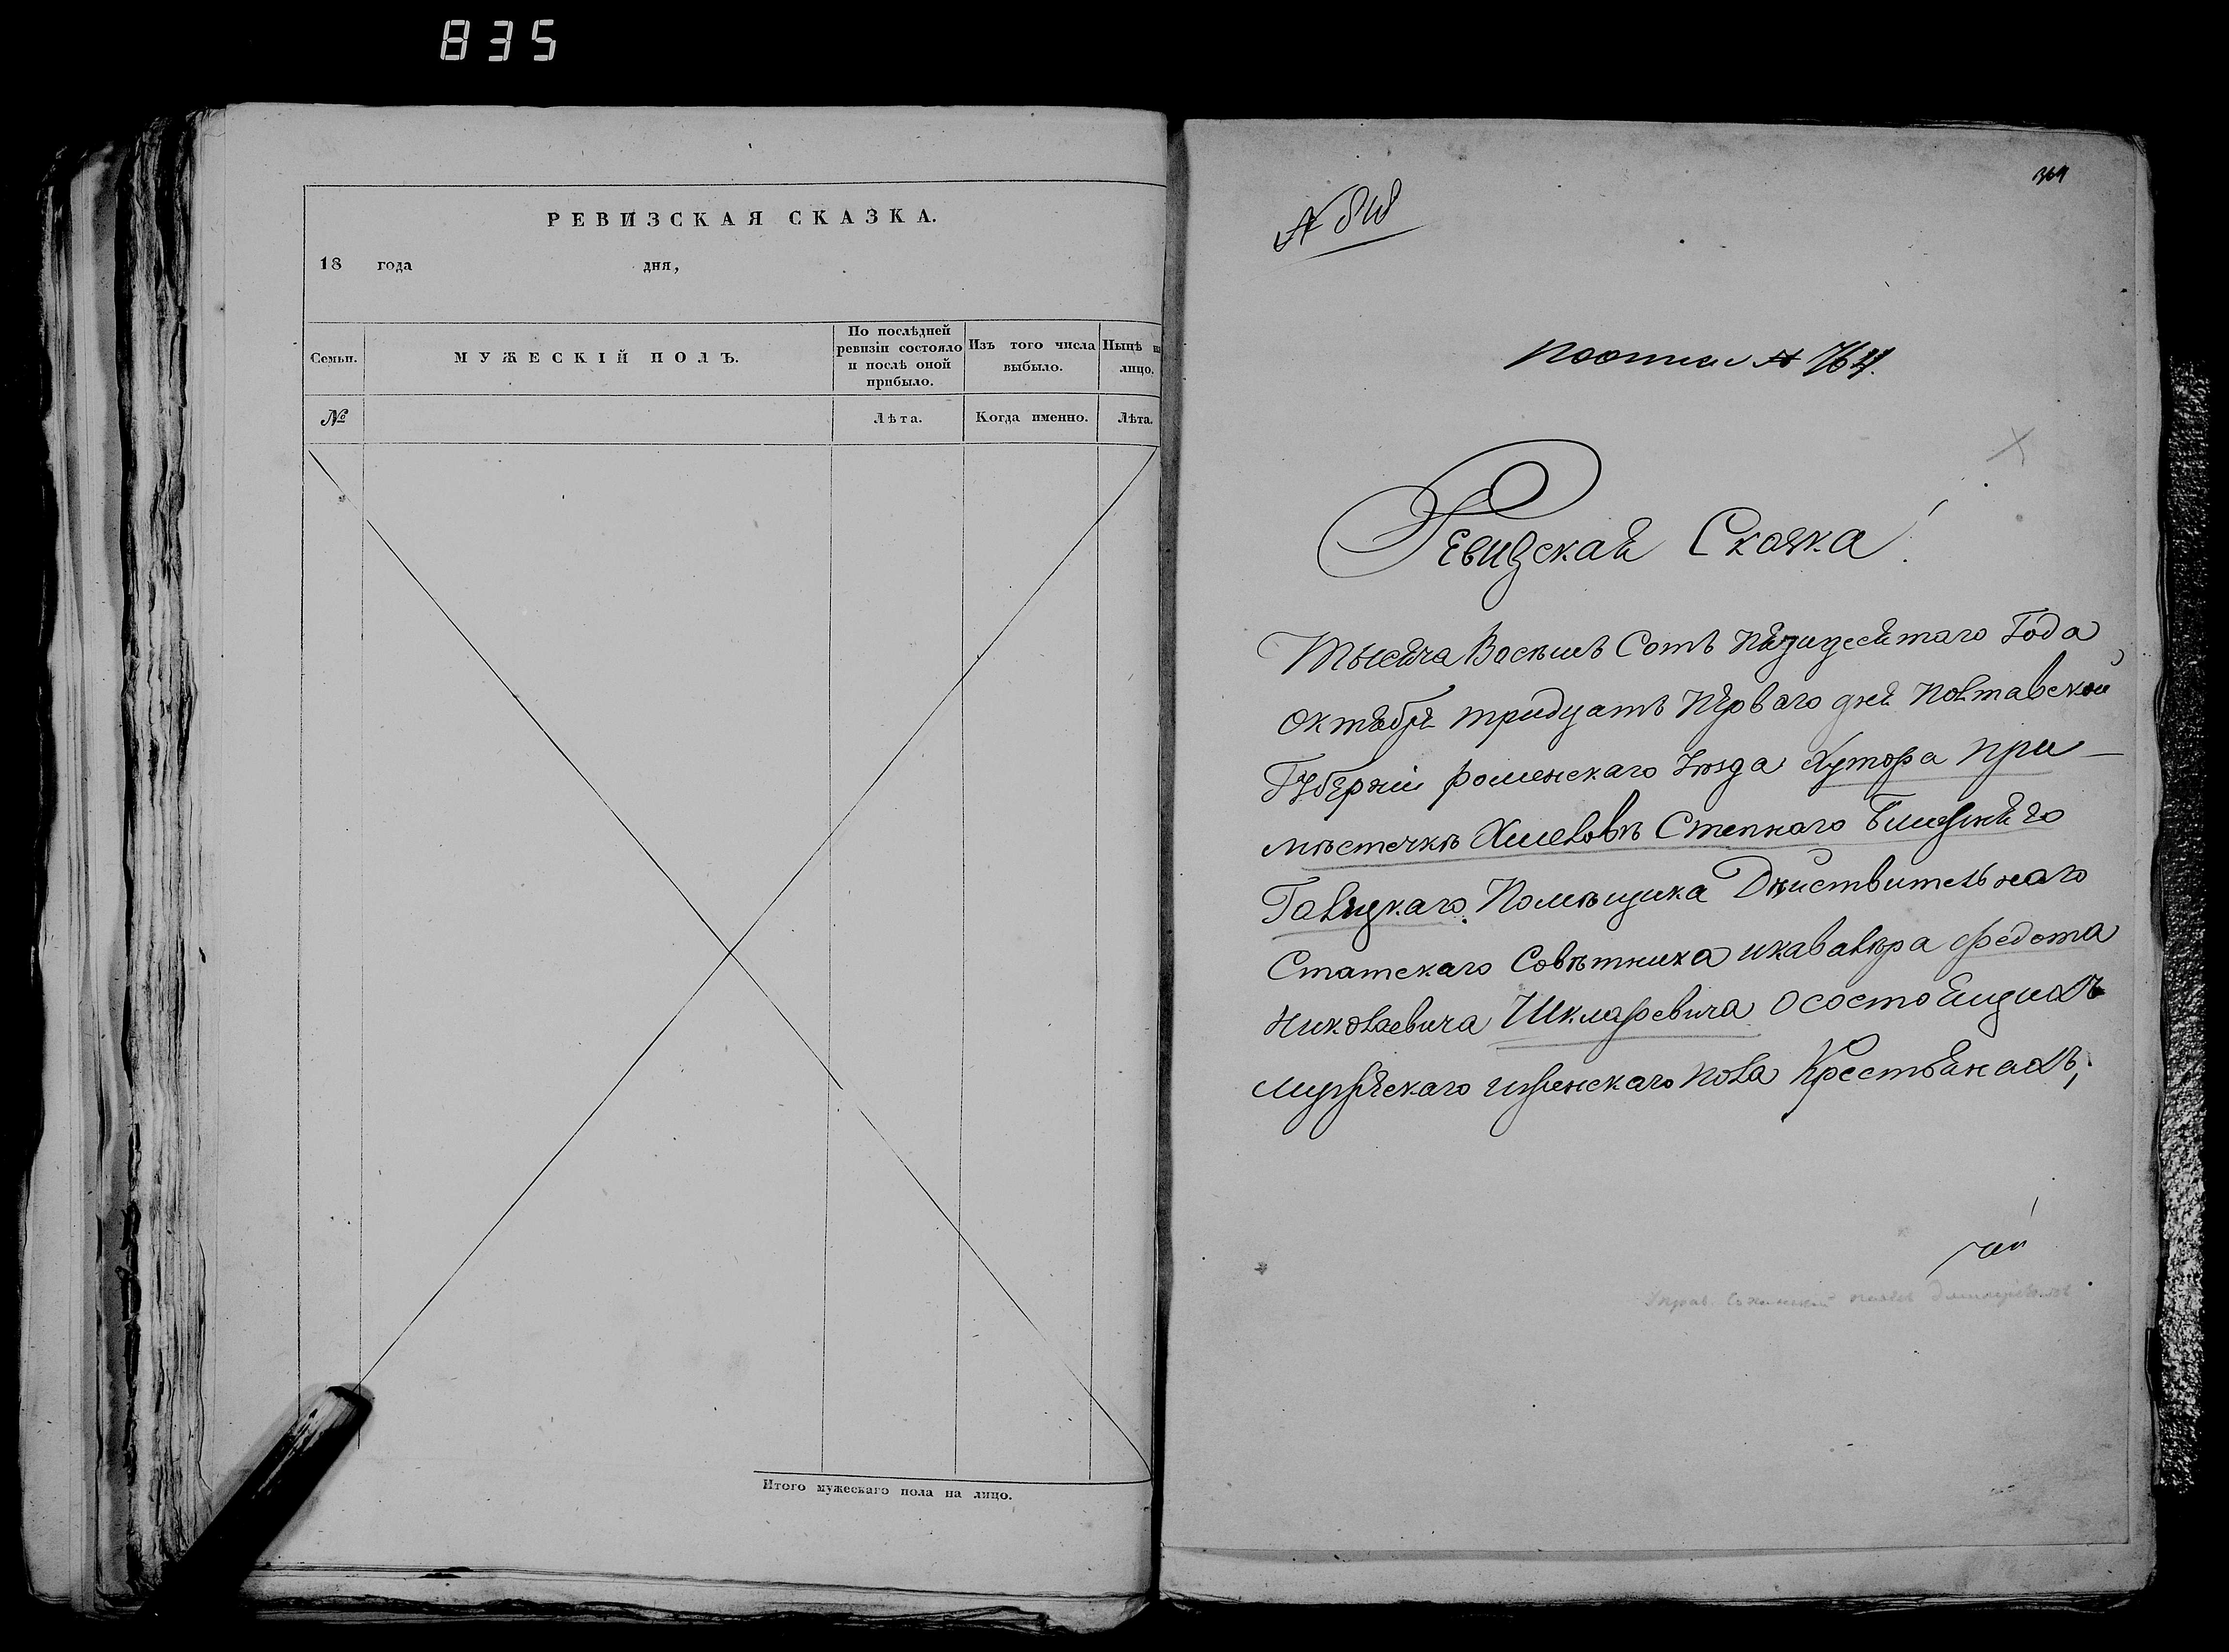 835
РЕВИЗСКАЯ СКАЗКА.
18 года дня,
Семьи.
МУЖЕСКІЙ ПОЛЪ.
По послѣдней ревизіи состояло и послѣ оной прибыло.
Изъ того числа выбыло.
Нынѣ на лицо.
№
Лѣта.
Когда именно.
Лѣта.
Итого мужескаго пола на лицо.
364
№ 848
№ 764.
Ревизская Сказка
Тысяча Восемь Сотъ Пядидесятаго Года
Октября тридцать Перваго дня Полтавской
Губерніи Роменскаго Уезда Хутора при
мѣстечкѣ Хмеловѣ Степнаго
Галицкаго. Помѣщика Дѣйствительнаго
Статскаго Совѣтника икавалѣра Федота
Николаевича Шкларевича О состоящихъ
мужескаго иженскаго пола Крестьянахъ,